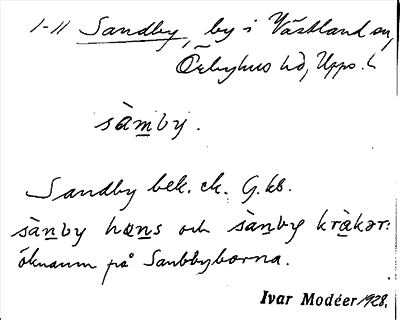 1-11 Sandby, by i Västland sn,
Örbyhus hd, Upps. l.
sàmby.
Sandby bek. ek. G. kb.
sànby hœns och sànby kràkər:
öknamn på Sanbbyborna.
Ivar Modéer 1928.